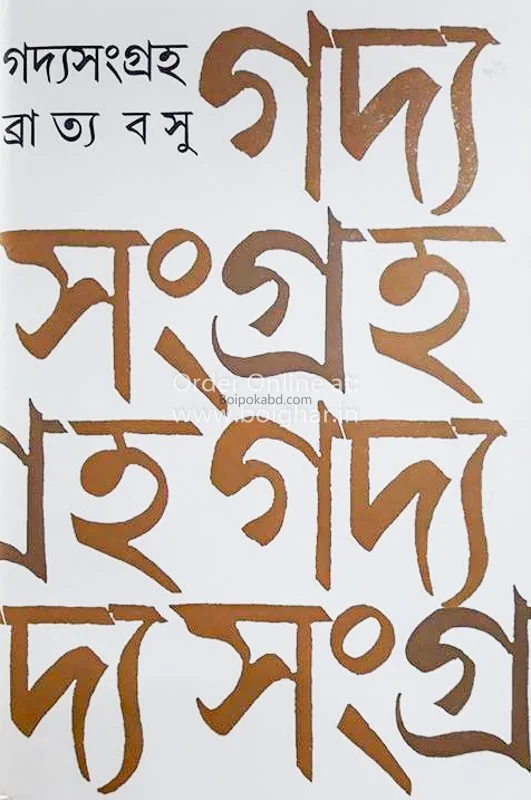 গদ্যসংগ্রহ
ব্রাত্য বসু
গদ্য
সংগ্রহ
Order Online at:
Boipokabd.com
www.boighar.in
গ্রহ গদ্য
দ্য সংগ্র